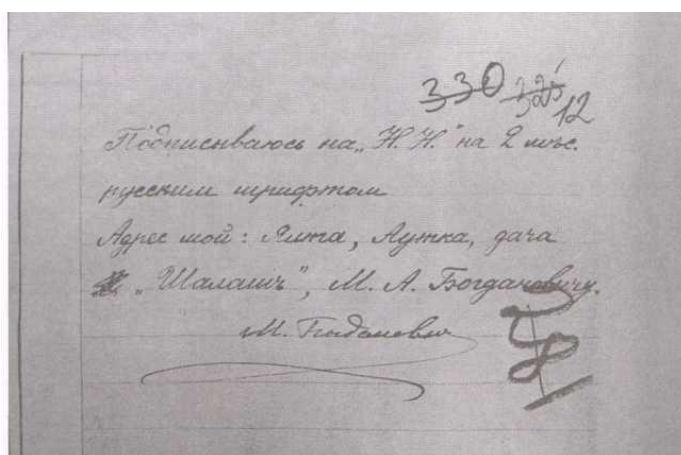 330 325 12
Подписываюсь на „Н. Н." на 2 мѣс.
русским шрифтом
Адрес мой: Ялта, Аутка, дача
„Шалашъ", М. А. Богдановичу.
М. Богданович